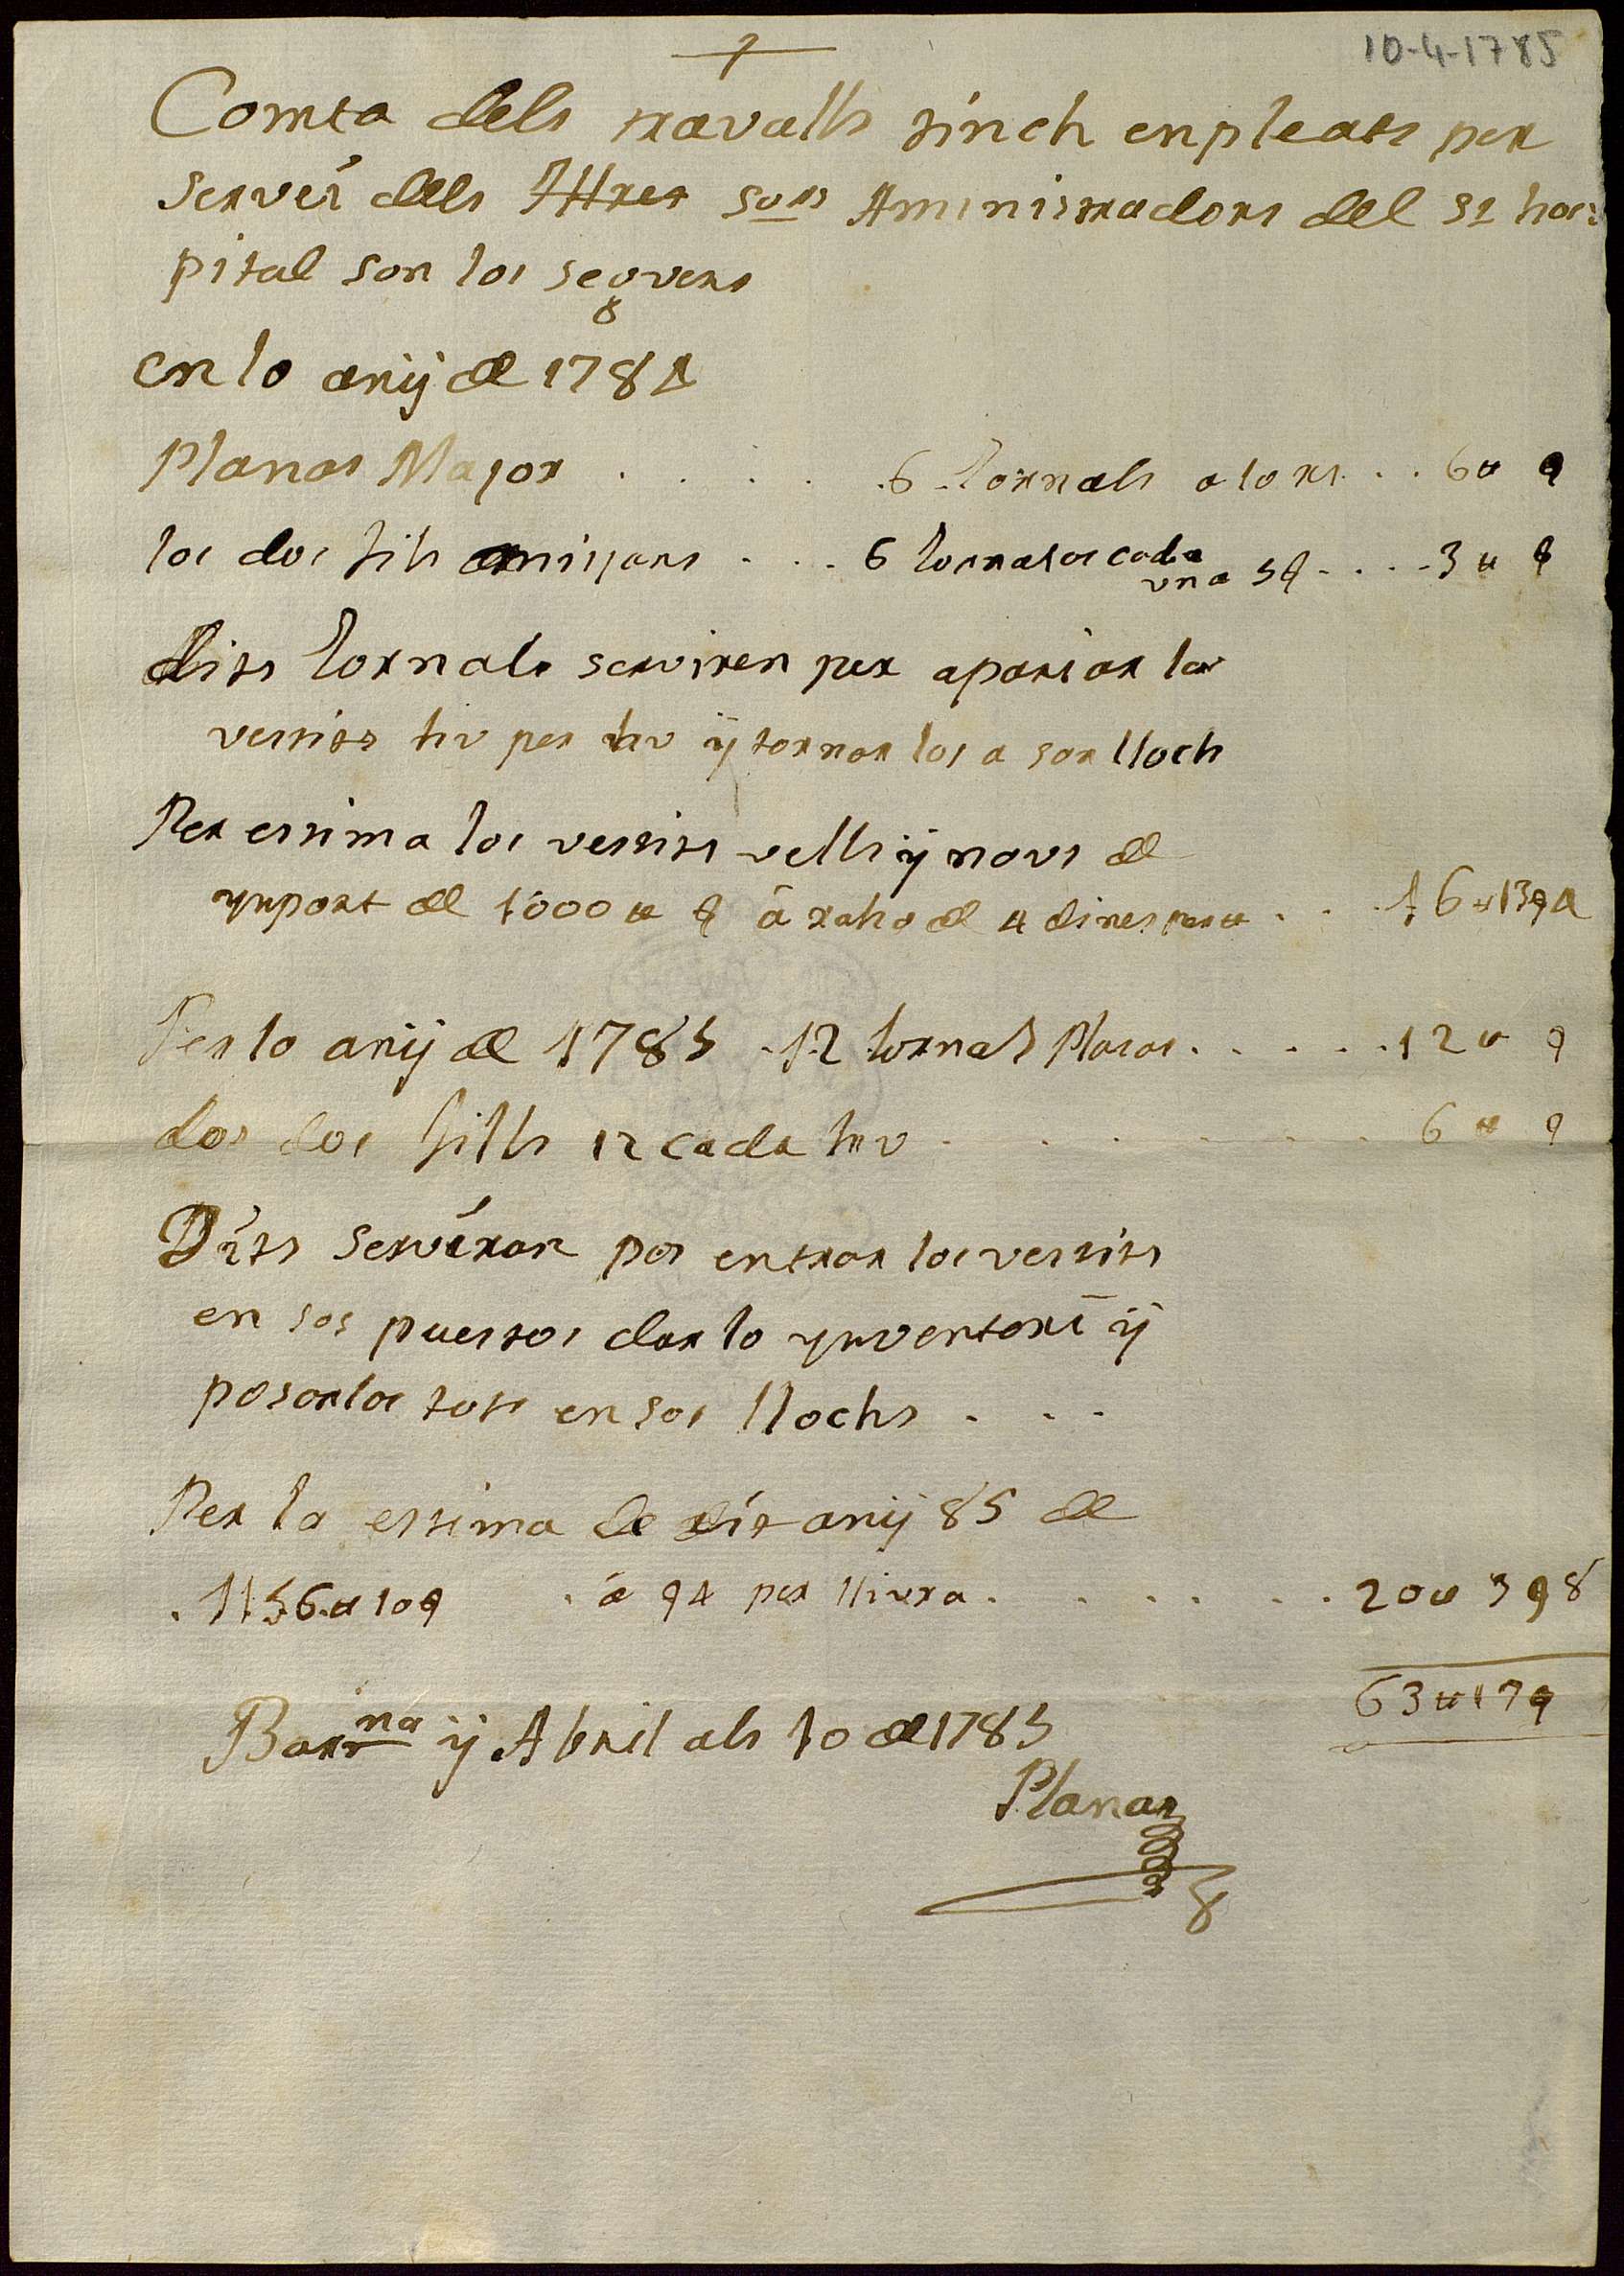 10-4-1785
Comta dels travalls tinch enpleats per
servei dels Iltres Sors Aminis­tradors del St hos:
pital son los seguens
en lo anÿ de 1784
Planas Major . . . . . 6 Jornals a 10 rs . . 6 ₶ ꝯ
los dos fils mitjans . . . 6 Jornals cada
una 5 ꝯ . . . . 3 ₶ ꝯ
dits Jornals serviren per apariar los
vestits hu per hu ÿ tornar los a son lloch
Per estima los vestits vells ÿ nous de
ynport de 1000 ₶ ꝯ á raho de 4 dines per ₶ . . . 16 ₶ 13 ꝯ 4
Per lo anÿ de 1785 . 12 Jornals Planas . . . . . 12 ₶ ꝯ
Los dos fills 12 cada hu . . . . . . . 6 ₶ ꝯ
Dits serviran per entrar los vestits
en sos puestos dar lo ynventari ÿ
posarlos tots en sos llochs . . .
Per la estima de dit anÿ 85 de
. 1156 ₶ 10 ꝯ . á ꝯ 4 per lliura . . . . . . 20 ₶ 3 ꝯ 8
63 ₶ 17 ꝯ
Barna ÿ Abril als 10 de 1785
Planas